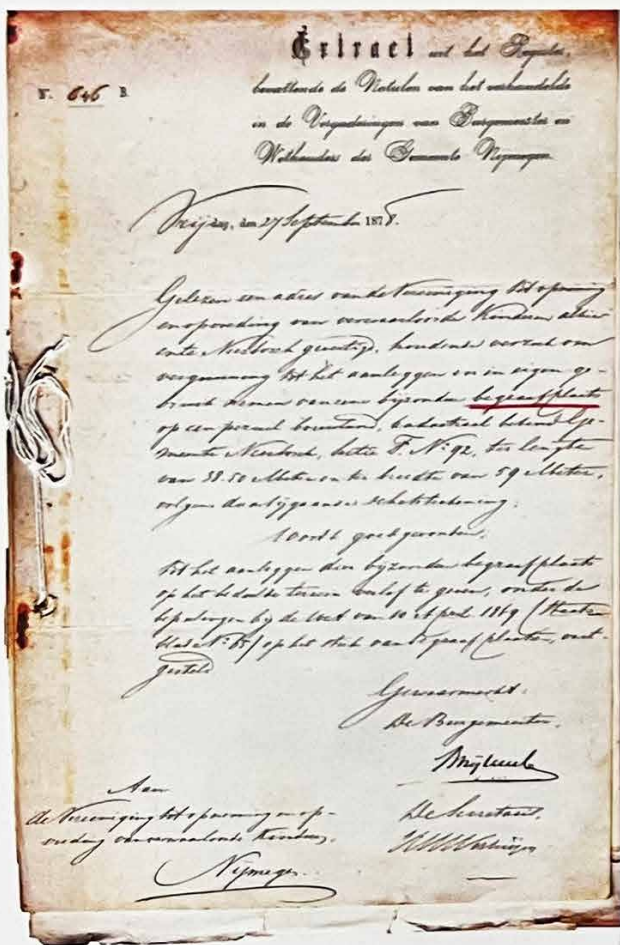 Extract uit het Register,
N. 646 B.
bevattende de Notulen van het verhandelde
in de Vergaderingen van Burgemeester en
Wethouders der Gemeente Nijmegen.
Vrijdag, den 27 September 1878.
Gelezen een adres van de Vereeniging tot opneming
en opvoeding van verwaarloosde Kinderen alhier
onder Neerbosch gevestigd, houdende verzoek om
vergunning tot het aanleggen en in eigen ge-
bruik nemen van een bijzondere begraafplaats
op een perceel bouwland, kadastraal bekend Ge-
meente Neerbosch, sectie F. No. 92, ter lengte
van 38.50 Meter en ter breedte van 59 Meter,
volgens daarbijgaande schetsteekening;
Wordt goedgevonden:
tot het aanleggen dier bijzondere begraafplaats
op het bedoelde terrein verlof te geven, onder de
bepalingen bij de Wet van 10 April 1869 (Staats-
blad No. 65) op het stuk van begraafplaatsen, vast-
gesteld
Gewaarmerkt:
De Burgemeester,
Aan
de Vereeniging tot opneming en op-
voeding van verwaarloosde Kinderen,
Nijmegen.
De Secretaris,